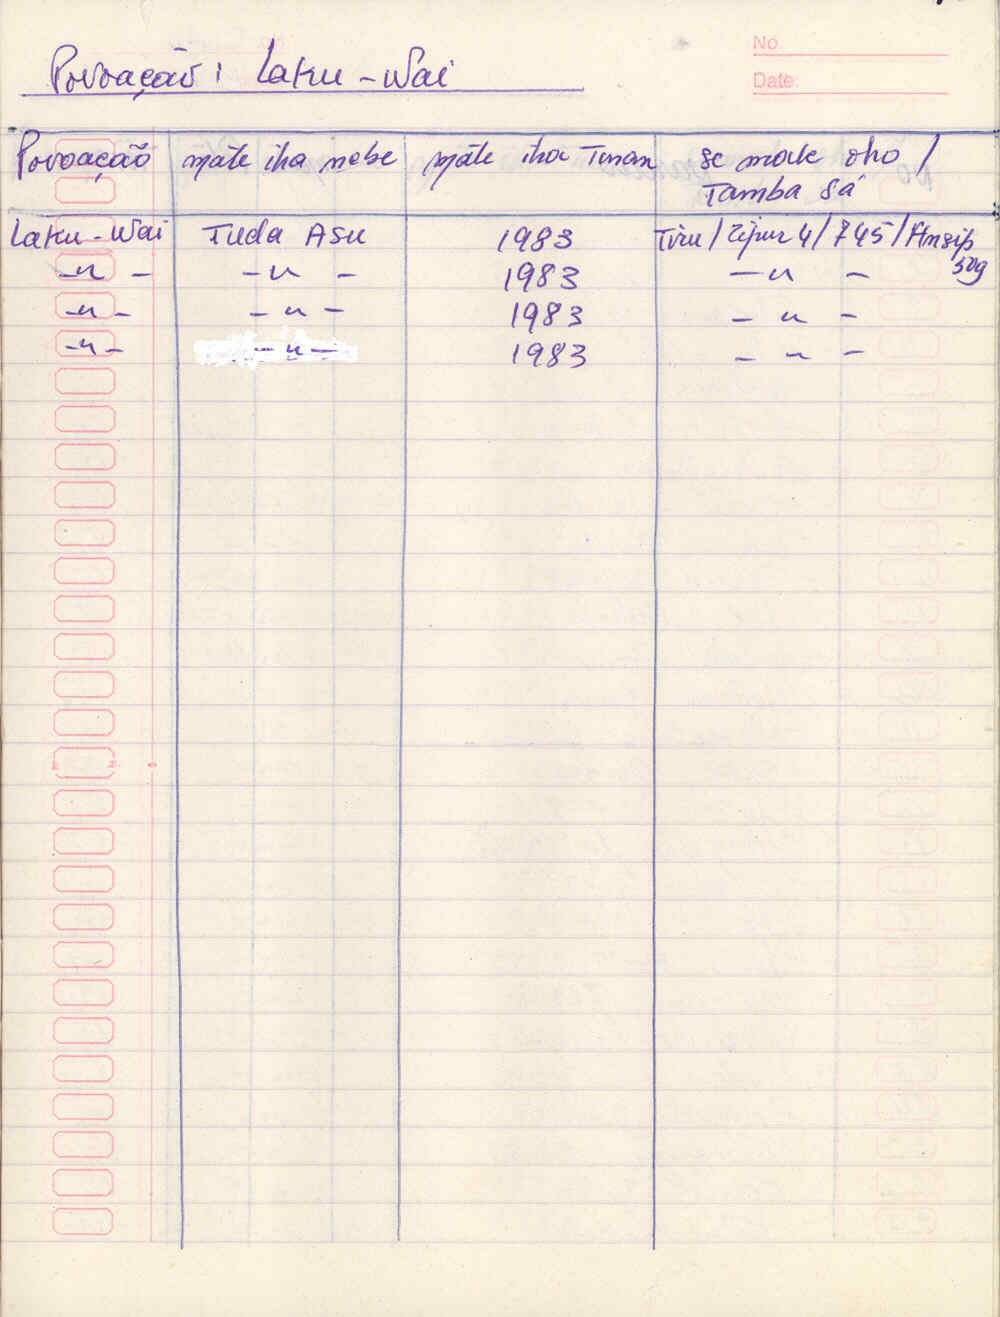 No.
Date:
Povoação: Laku-Wai
Povoação mate iha nebe mate iha Tinan se mak oho /
Tamba sá
Laku-Wai Tuda Asu 1983 Tiru / Zipur 4 / 745 /
-"- -"- 1983 -"-
-"- -"- 1983 -"-
-"- -"- 1983 -"-